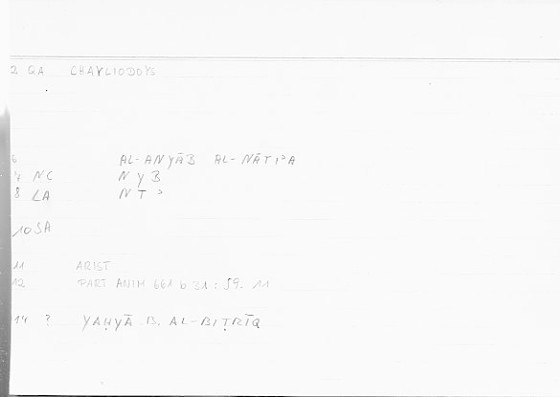 2 GA CHAYLIODOYS
6 AL-ANYĀB AL-NĀTIʾA
7 NC NYB
8 LA NTʾ
10 SA
11 ARIST
12 PART ANIM 661 b 31 : 59. 11
14 ? YAḤYĀ B. AL-BIṬRĪQ